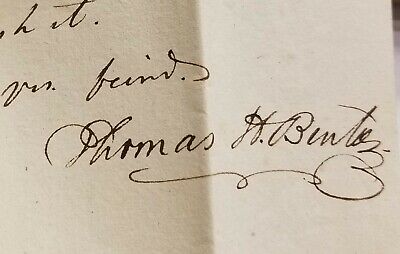 it.
yrs. friend.
Thomas H. Benton